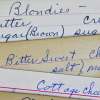 Blondies -
utter Cr
ugar (Brown) sug
Bitter Sweet Ch
salt / m
Cottage Che